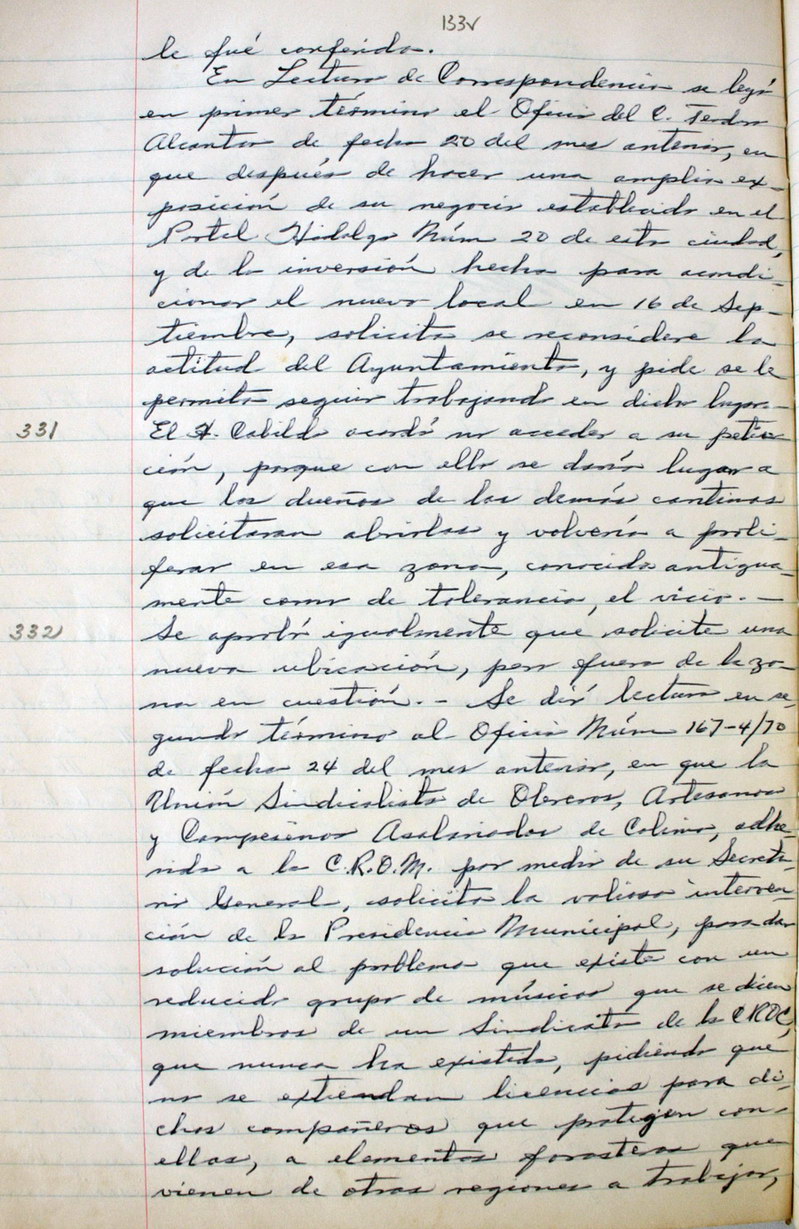 133v
le fué conferida.
En Lectura de Correspondencia se leyó
en primer término el Oficio del C. Teodoro
Alcantar de fecha 20 del mes anterior, en
que después de hacer una amplia ex-
posición de su negocio establecido en el
Portal Hidalgo Núm 20 de esta ciudad,
y de la inversión hecha para acondi-
cionar el nuevo local en 16 de Sep-
tiembre, solicita se reconsidere la
actitud del Ayuntamiento, y pide se le
permita seguir trabajando en dicho lugar.-
331 El H. Cabildo acordó no acceder a su peti-
ción, porque con ello se daría lugar a
que los dueños de las demás cantinas
solicitaran abrirlas y volvería a proli-
ferar en esa zona, conocida antigua-
mente como de tolerancia, el vicio.-
332 Se aprobó igualmente que solicite una
nueva ubicación, pero fuera de la zo-
na en cuestión.- Se dió lectura en se-
gundo término al Oficio Núm 167-4/70
de fecha 24 del mes anterior, en que la
Unión Sindicalista de Obreros, Artesanos
y Campesinos Asalariados de Colima, adhe-
rida a la C.R.O.M. por medio de su Secreta-
rio General, solicita la valiosa interven-
ción de la Presidencia Municipal, para dar
solución al problema que existe con un
reducido grupo de músicos que se dicen
miembros de un Sindicato de la CROC,
que nunca ha existido, pidiendo que
no se extiendan licencias para di-
chos compañeros que protegen con
ellas, a elementos forasteros que
vienen de otras regiones a trabajar,